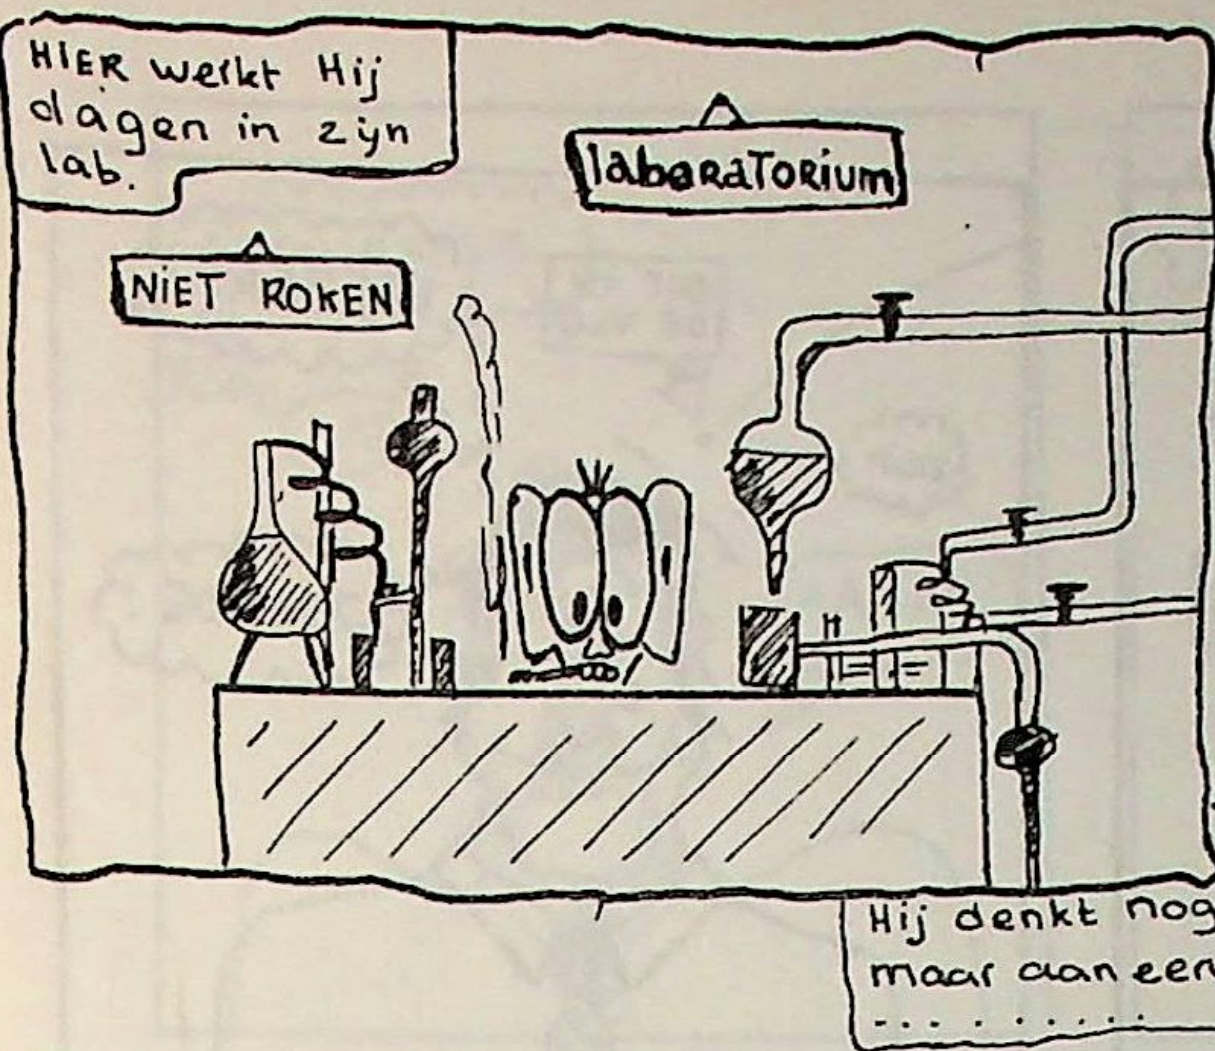 HIER werkt Hij
dagen in zijn
lab.
laboraTorium
NiET ROKEN
Hij denkt nog
maar aan een
.. . . . . . .